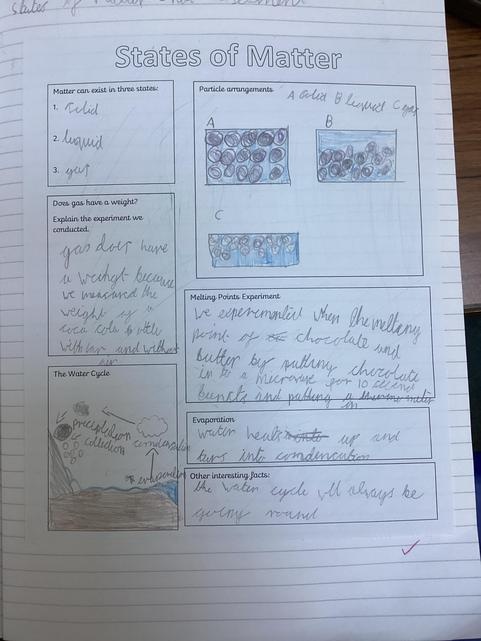 States of Matter
States of Matter
Matter can exist in three states:
1. solid
2. liquid
3. gas
Particle arrangements
A solid B liquid C gas
A
B
C
Does gas have a weight?
Explain the experiment we
conducted.
gas does have
a weight because
we measured the
weight of a
coca cola bottle
with air and without
air
Melting Points Experiment
we experimentied when the meltany
point of chocolate and
butter by puttany chocolate
in to a microwave for 10 second
bursts and putting a thurmometer
on
The Water Cycle
precipitation
collection
condensation
evaporation
Evaporation
water heats up and
turs into condencation
Other interesting facts:
the water cycle will always be
going round